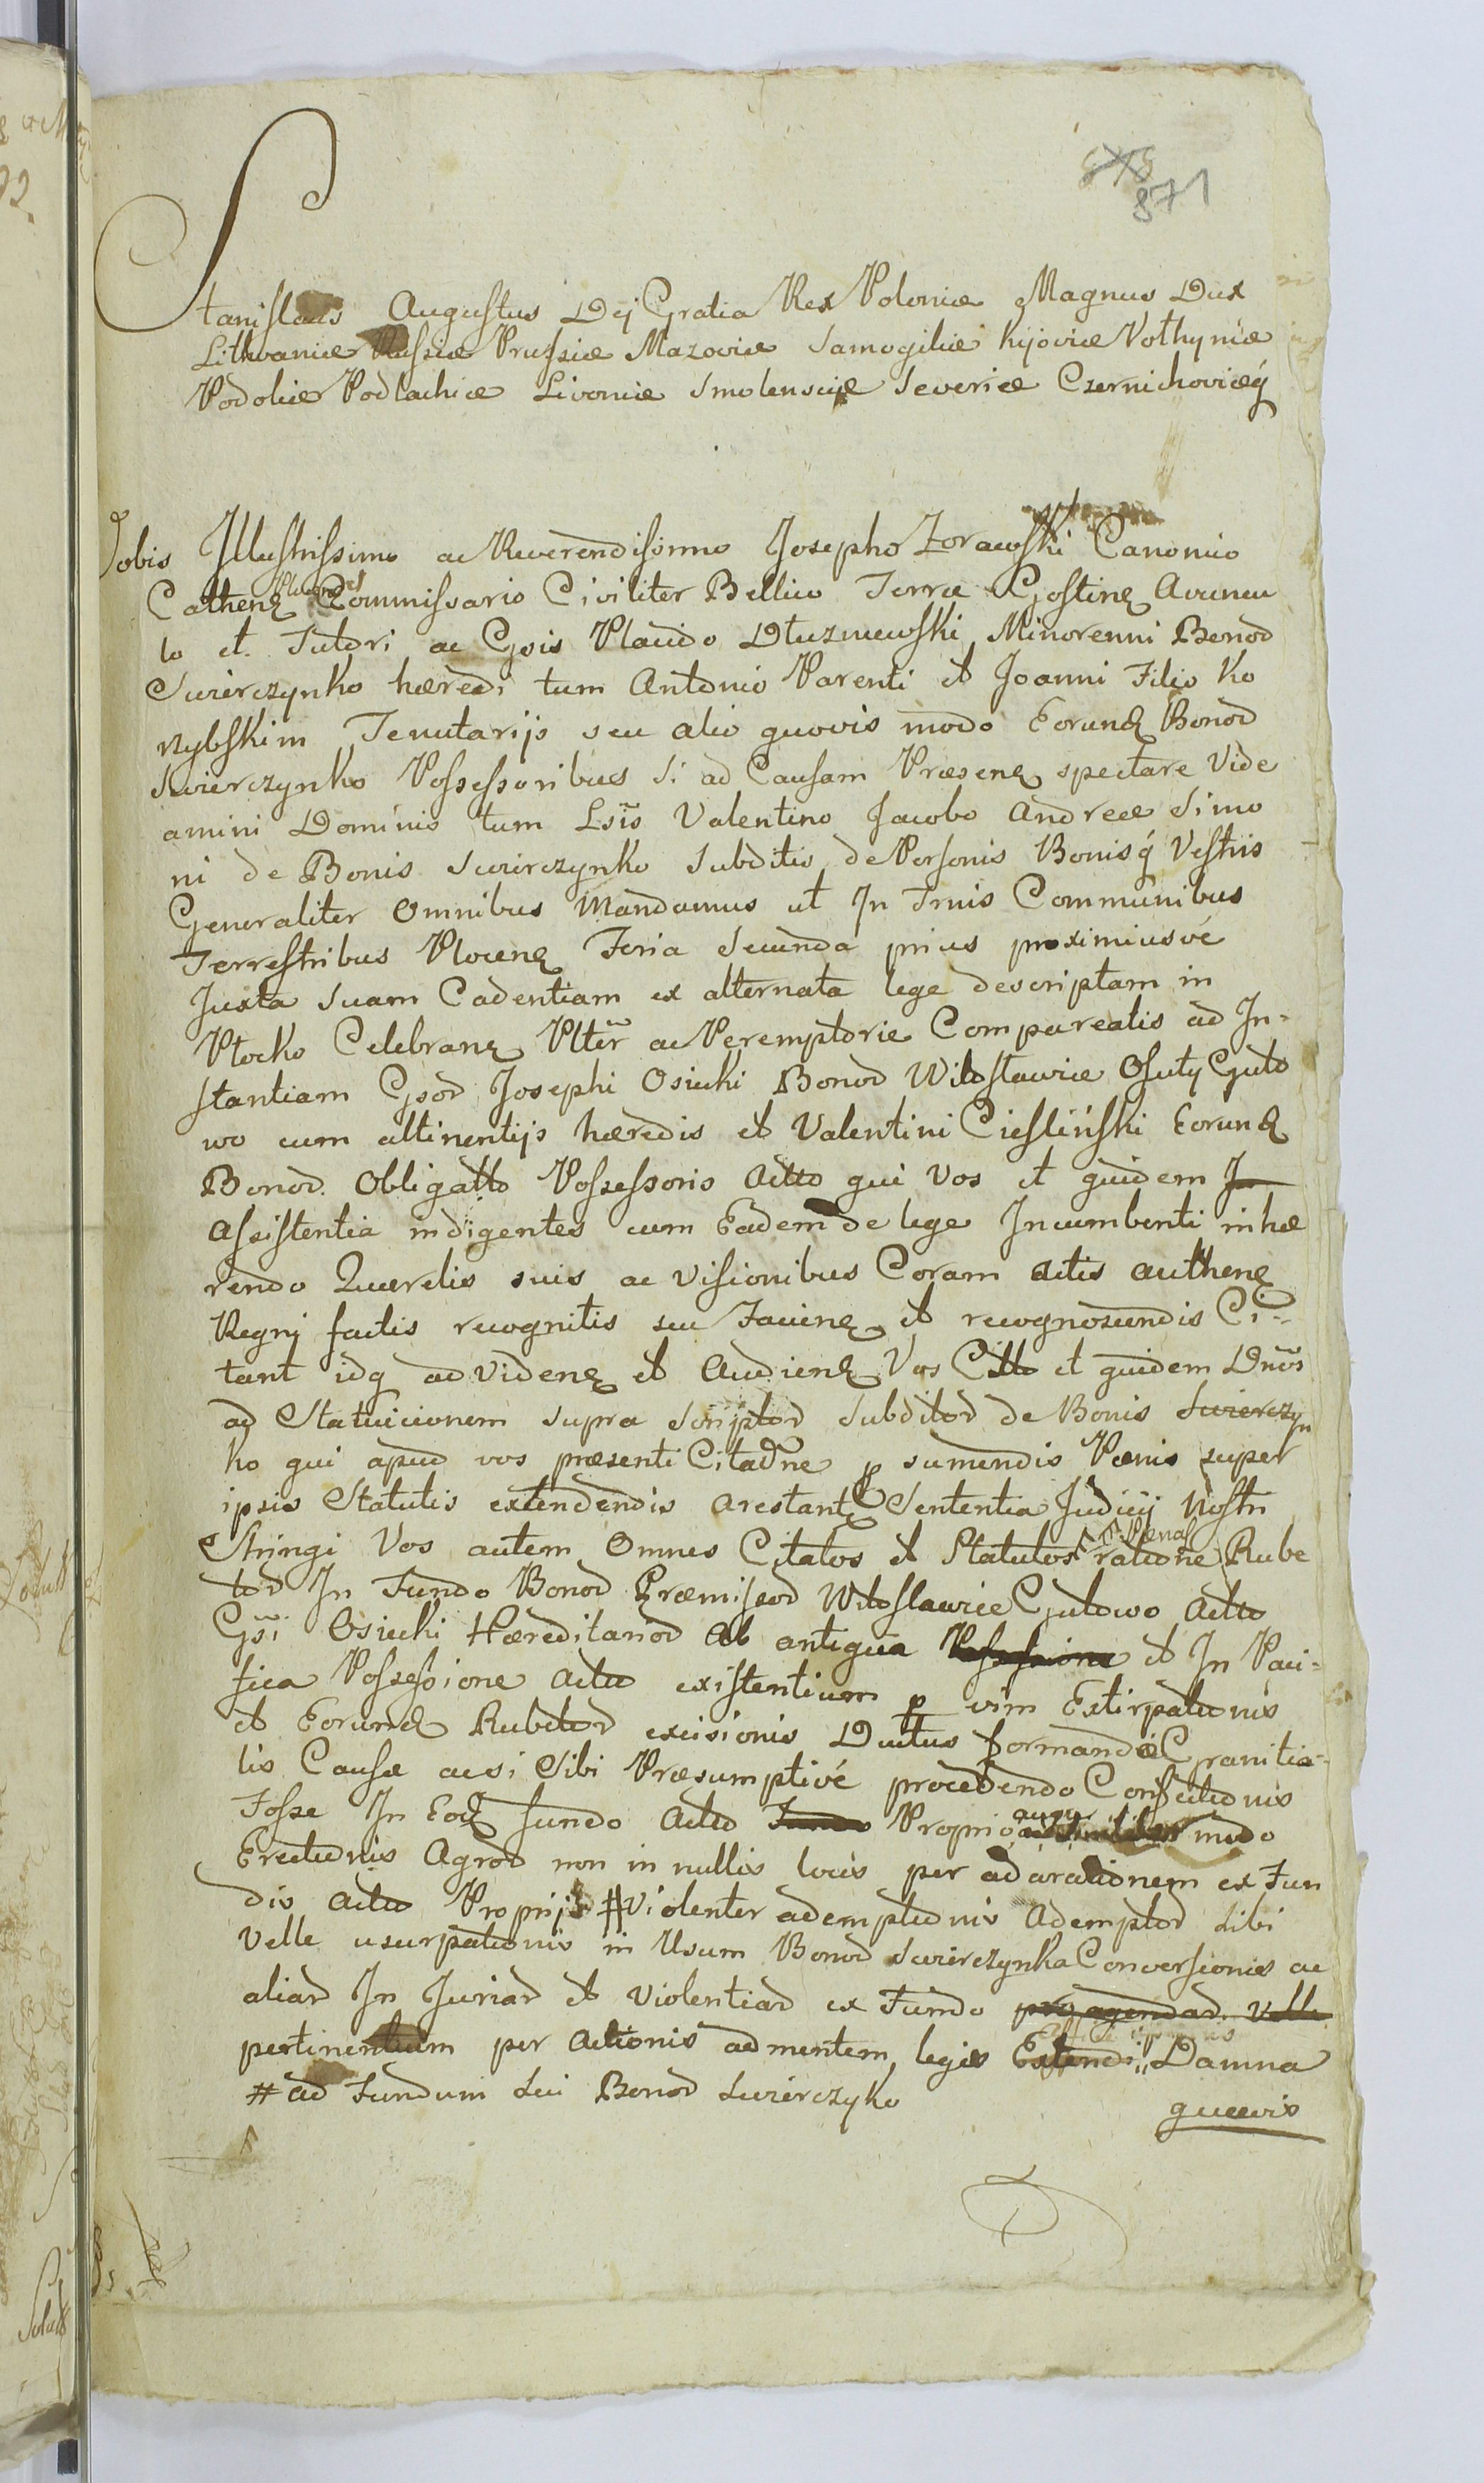 871
Stanislaus Augustus Dej Gratia Rex Poloniæ Magnus Dux
Lithvaniæ Russiæ Prussiæ Mazoviæ Samogitiæ Kijoviæ Volhyniæ
Podoliæ Podlachiæ Livoniæ Smolensciæ Severiæ Czernichoviæq
Vobis Illustrissimo ac Reverendissimo Josepho Zorawski Canonico
Cathenꝫ Commissario Civiliter Bellico Terræ Gostinꝫ Avuncu
lo et Tutori ac Gsis Placido Dłuzniewski Minorenni Bonoꝝ
Swierczynko hæredi tum Antonio Parenti et Joanni Filio Ko
rzybskim Tenutarijs seu alio quovis modo Eorundꝫ Bonoꝝ
Swierczynko Possessoribus Si ad Causam Præsenꝫ spectare Vide
amini Dominis tum Lsis Valentino Jacobo Andreæ Simo
ni de Bonis Swierczynko Subditis de Personis Bonisq Vestris
Generaliter Omnibus Mandamus ut In Trnis Communibus
Terrestribus Plocenꝫ Feria Secunda prius proximiusvé
Juxta Suam Cadentiam ex alternata lege descriptam in
Płocko Celebranꝫ Pltr ac Peremptorie Compareatis ad In-
stantiam Gsoꝝ Josephi Osiecki Bonoꝝ Witosławice Osuty Guto
wo cum attinentijs hæredis et Valentini Cieśliński Eorundꝫ
Bonoꝝ Obligatto Possessoris Actto qui Vos et quidem
Assistentia indigentes cum Eadem de lege Incumbenti inhæ
rendo Querelis suis ac Visionibus Coram Actis authenꝫ
Regnj factis recognitis seu Faciendꝫ et recognoscendis Ci-
tant idq ad Videnꝫ et Audienꝫ Vos Citto et quidem Dnos
ad Statuicionem supra scriptoꝝ Subditoꝝ de Bonis Swierczyn
ko qui apud vos præsenti Citatne p sumendis Pænis super
ipsis Statutis extendendis arestantꝫ Sententia Judicij Nostri
Stringi Vos autem Omnes Citatos et Statutos ratione Rube
toꝝ In Fundo Bonoꝝ Præmissoꝝ Witosławice Gutowo Actto
Gsi Osiecki Hæreditarioꝝ Ab antiqua Possessione et In Paci-
fica Possessione Actto existentium p vim Extirpationis
et Eorundꝫ Rubetoꝝ excisionis Ductus formandæ Granitia-
lis Causæ acsi Sibi Præsumptivé procedendo Confectionis
Fossæ In Eodꝫ fundo Actto Fundo Proprio modo
Erectionis Agroꝝ non in nullis locis per adarationem ex Fun
dis Actto Proprijs # Violenter ademptionis Ademptoꝝ Sibi
Velle usurpationis in Usum Bonoꝝ Swierczynka Conversionis ac
aliaꝝ In Juriaꝝ et Violentiaꝝ ex Fundo proagendaꝝ Velle
pertinentium per Actionis ad mentem legis Extendi Damna
# ad Fundum Sui Bonoꝝ Swierczyko
quævis